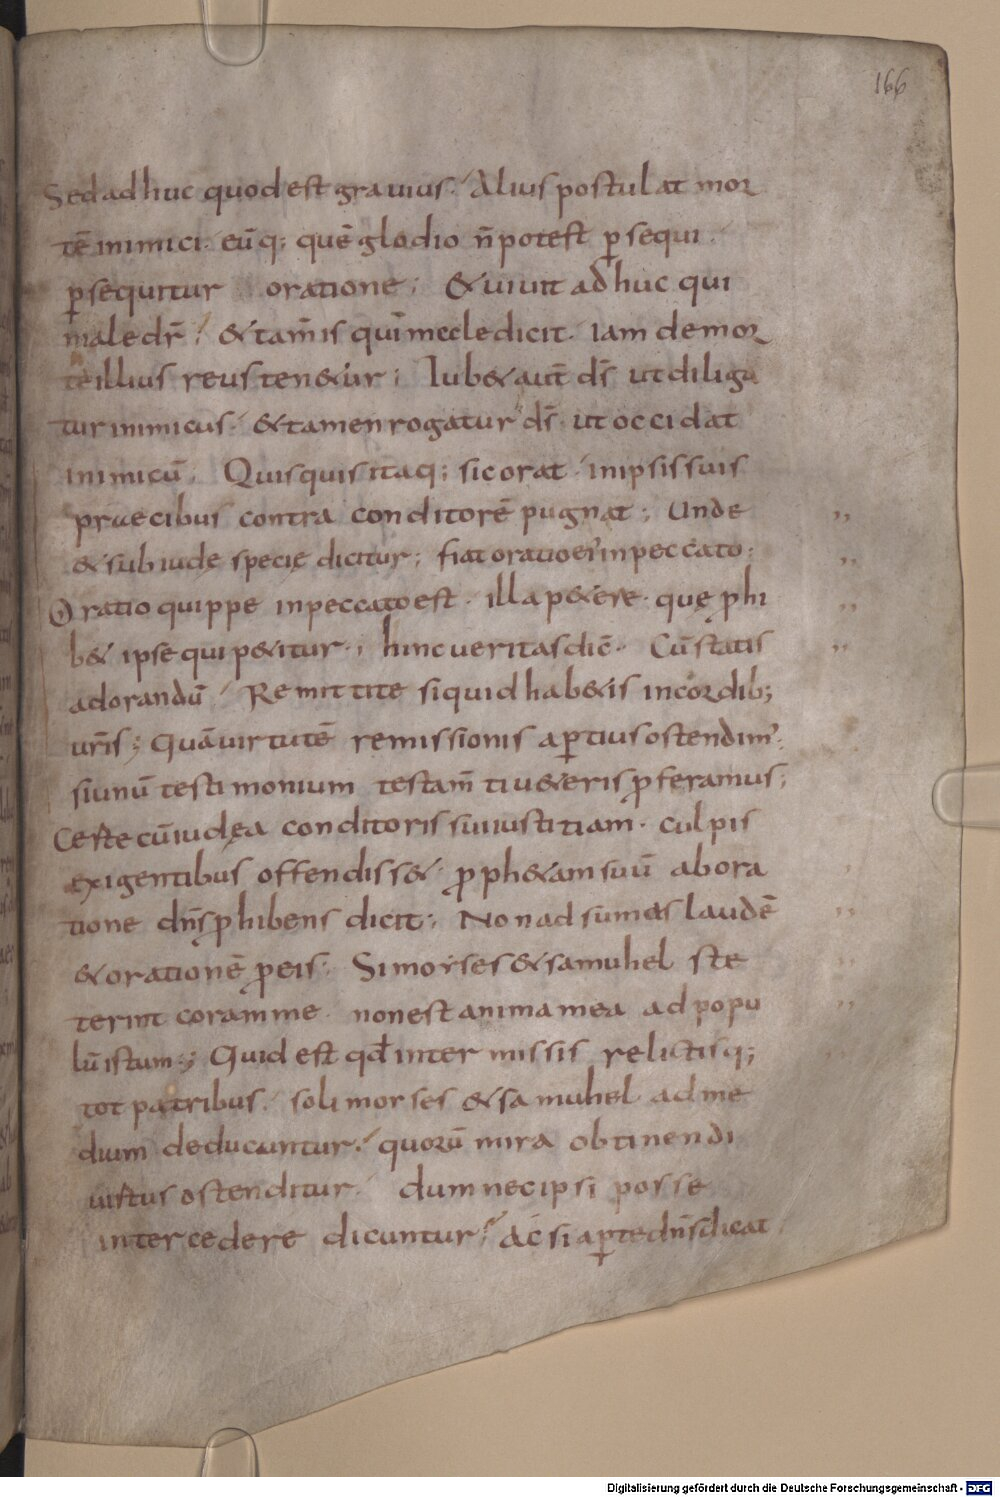 166
Sed adhuc quod est gravius. Alius postulat mor
tē inimici. eūq; quē gladio ñ potest psequi
psequitur oratione; & vivit adhuc qui
maledr̄. & tam̄ is qui maledicit. iam de mor
te illius reus ten&ur; Iub& aut̄ ds̄ ut diliga
tur inimicus. & tamen rogatur ds̄ ut occidat
inimicū; Quisquis itaq; sic orat. in ipsis suis
praecibus contra conditorē pugnat; Unde
& sub iudę specię dicitur; fiat oratio ei' in peccato;
Oratio quippe in peccato est. illa p&ere. quę phi
b& ipse qui p&itur; hinc veritas dic̄. Cū statis
ad orandū. Remittite si quid hab&is in cordib;
vr̄is; Quā virtutē remissionis aptius ostendim'.
si unū testimonium testam̄ti v&eris pferamus;
Certe cū iudęa conditoris sui iustitiam. culpis
exigentibus offendiss&. pph&am suū ab ora
tione dn̄s phibens dicit; Non adsumas laudē
& orationē p eis. Si moyses & samuhel ste
terint coram me. non est anima mea ad popu
lū istum; Quid est qđ intermissis relictisq;
tot patribus. soli moyses & samuhel ad me
dium deducuntur. quorū mira obtinendi
virtus ostenditur. dum nec ipsi posse
intercedere dicuntur. Ac si apte dn̄s dicat
Digitalisierung gefördert durch die Deutsche Forschungsgemeinschaft - DFG